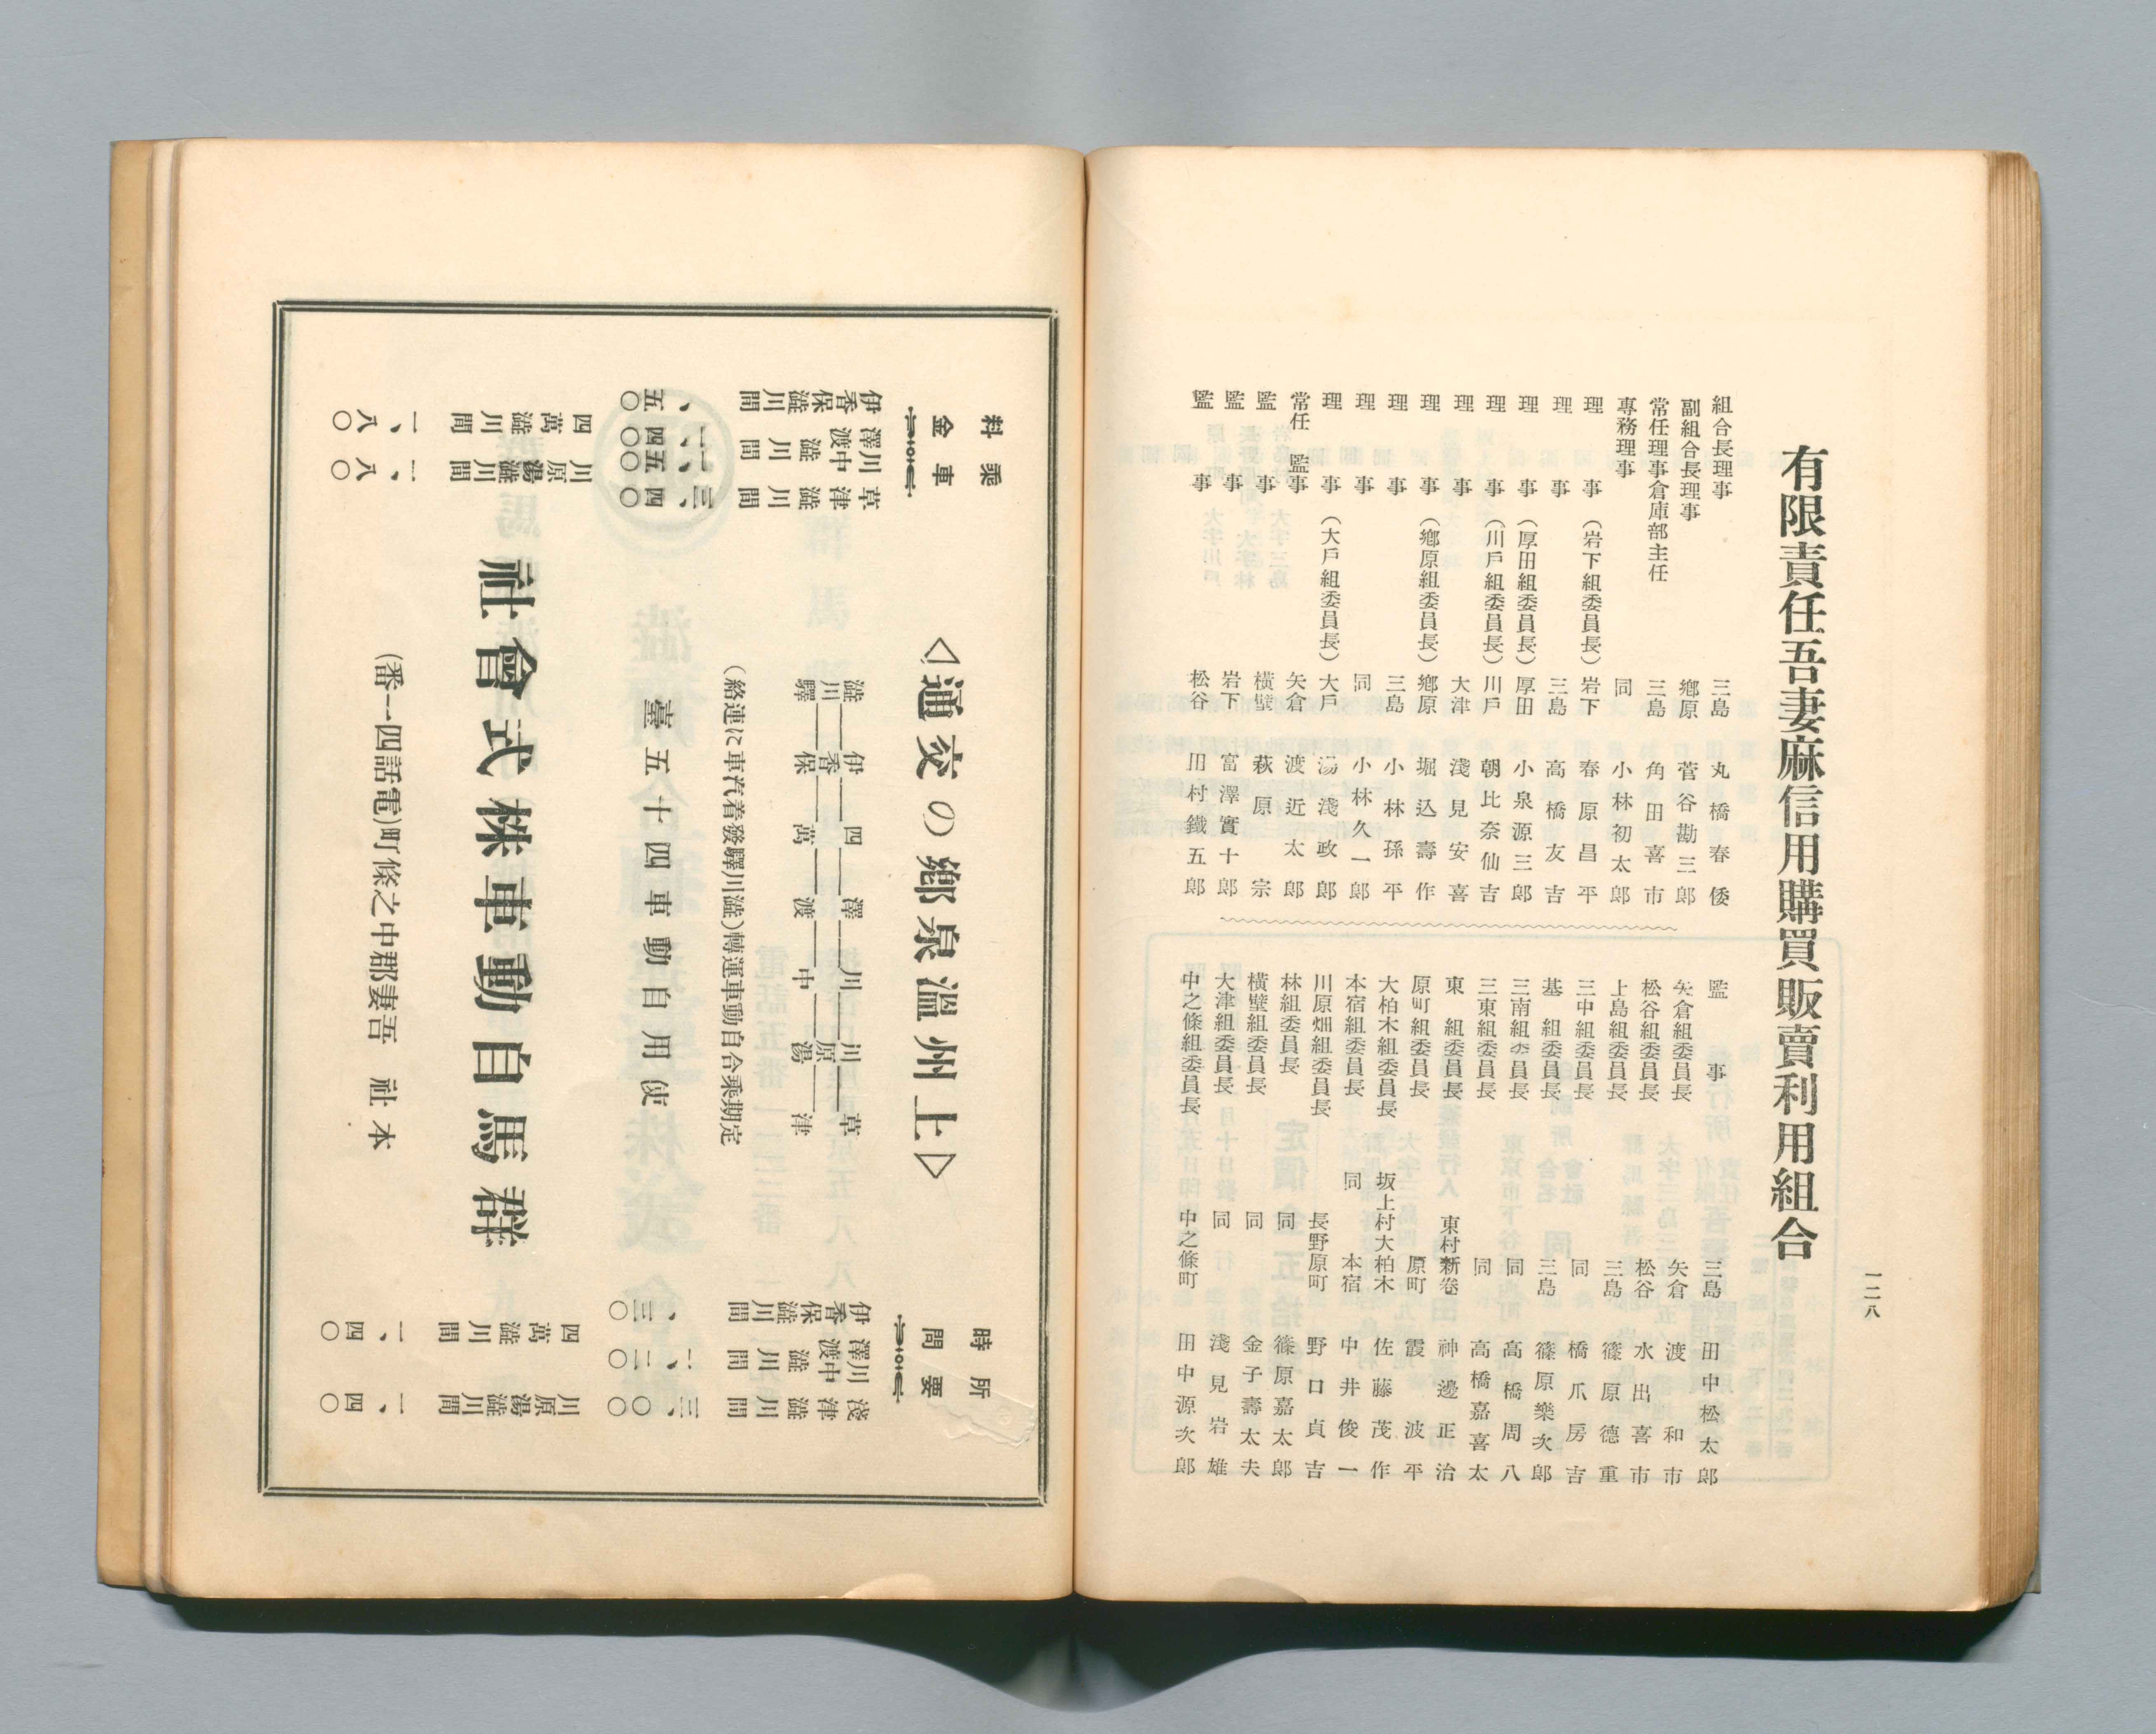 一二八
有限責任吾妻麻信用購買販賣利用組合
組合長理事 三島 丸橋春倭
副組合長理事 鄕原 菅谷勘三郎
常任理事倉庫部主任 三島 角田喜市
專務理事 同 小林初太郎
理事（岩下組委員長） 岩下 春原昌平
理事 三島 高橋友吉
理事（厚田組委員長） 厚田 小泉源三郎
理事（川戶組委員長） 川戶 朝比奈仙吉
理事 大津 淺見安喜
理事（鄕原組委員長） 鄕原 堀込壽作
理事 三島 小林孫平
理事 同 小林久一郎
理事（大戶組委員長） 大戶 湯淺政郎
常任監事 矢倉 渡近太郎
監事 橫壁 萩原宗
監事 岩下 富澤實十郎
監事 松谷 田村鐵五郎
監事 三島 田中松太郎
矢倉組委員長 矢倉 渡和市
松谷組委員長 松谷 水出喜市
上島組委員長 三島 篠原德重
三中組委員長 同 橋爪房吉
基組委員長 三島 篠原樂次郎
三南組委員長 同 高橋周八
三東組委員長 同 高橋嘉喜太
東組委員長 東村新卷 神邊正治
原町組委員長 原町 霞波平
大柏木組委員長 坂上村大柏木 佐藤茂作
本宿組委員長 同 本宿 中井俊一
川原畑組委員長 長野原町 野口貞吉
林組委員長 同 篠原嘉太郎
橫壁組委員長 同 金子壽太夫
大津組委員長 同 淺見岩雄
中之條組委員長 中之條町 田中源次郎
所要時間
淺津澁川間 三、〇〇
澤渡川中澁川間 二、二〇
伊香保澁川間 、三〇
川原湯澁川間 一、四〇
四萬澁川間 一、四〇
◁上州溫泉鄕の交通▷
澁川驛——伊香保——四萬——澤渡——川中——川原湯——草津
定期乘合自動車運轉(澁川驛發着汽車に連絡)
使用自動車四十五臺
群馬自動車株式會社
本社 吾妻郡中之條町(電話四一番)
乘車料金
草津澁川間 三、四〇
澤渡川中澁川間 一、四〇 一、五〇
伊香保澁川間 、五〇
川原湯澁川間 一、八〇
四萬澁川間 一、八〇